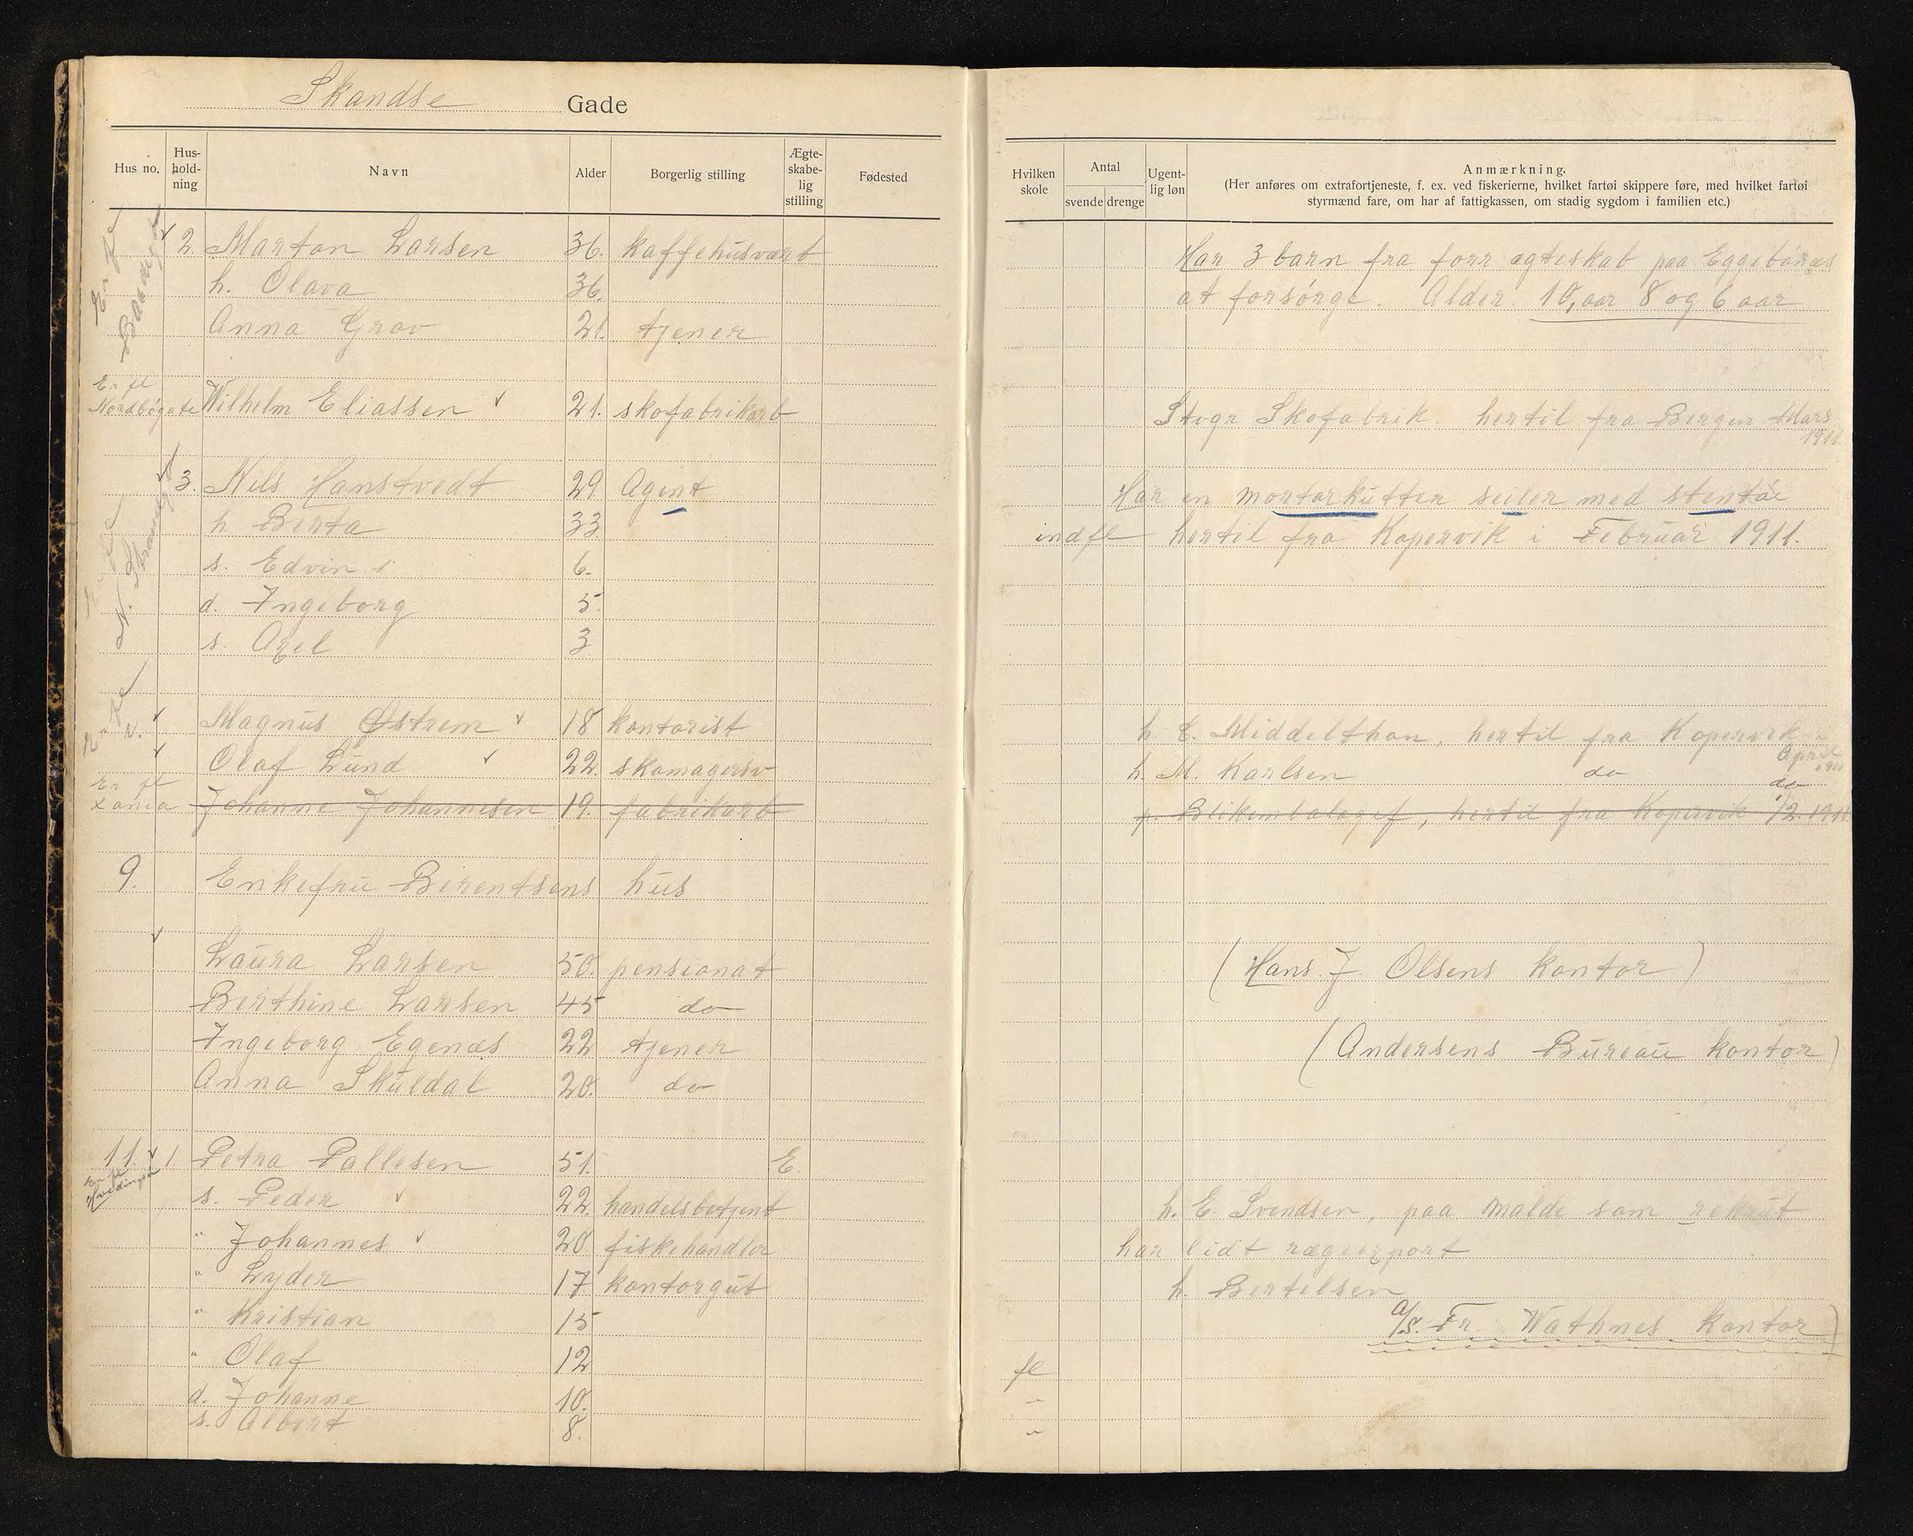 Skandse Gade
Hus no. Hus-hold-ning Navn Alder Borgerlig stilling Ægte-skabe-lig stilling Fødested Hvilken skole Antal svende drenge Ugent-lig løn Anmærkning.
(Her anføres om extrafortjeneste, f. ex. ved fiskerierne, hvilket fartøi skippere føre, med hvilket fartøi
styrmænd fare, om har af fattigkassen, om stadig sygdom i familien etc.)
2. Marton Larsen 36. kaffehusvært Har 3 barn fra forr ægteskab paa Eggebønes
h. Olava 36. at forsørge. Alder. 10, aar 8 og 6 aar
Anna Grav 21. tjener
Er fl
Nordbøgate Wilhelm Eliassen 21. skofabrikarb Stvgr Skofabrik. hertil fra Bergen Mars
1911
3. Nils Hanstvedt 29. Agent Har en mortorkutter seiler med stentøi
h Berta 33. indfl hertil fra Kopervik i Februar 1911.
s. Edvin 6.
d. Ingeborg 5.
s. Axel 3
N. Strandg
Magnus Østrem 18 kontorist h. E. Middelthon, hertil fra Kopervik
April
Olaf Lund 22. skomagersv h. M. Karlsen do do
Er fl
Johanne Johannesen 19. fabrikarb p. Blikembalagef, hertil fra Kopervik 1/2. 1911
9. Enkefru Berentsens hus
Laura Larsen 50. pensionat (Hans J. Olsens kontor)
Berthine Larsen 45 do
Ingeborg Egenæs 22 tjener (Andersens Bureau kontor)
Anna Skuldal 20. do
11. 1 Petra Pallesen 51. E.
s. Peder 22. handelsbetjent h. E. Svendsen, paa Malde som rekrut
" Johannes 20. fiskehandler har lidt rægeexport
" Lyder 17 kontorgut h. Bertelsen
" Kristian 15 A/S. Fr. Wathnes kontor)
" Olaf 12 fl
d. Johanne 10. "
s. Albert 8. "